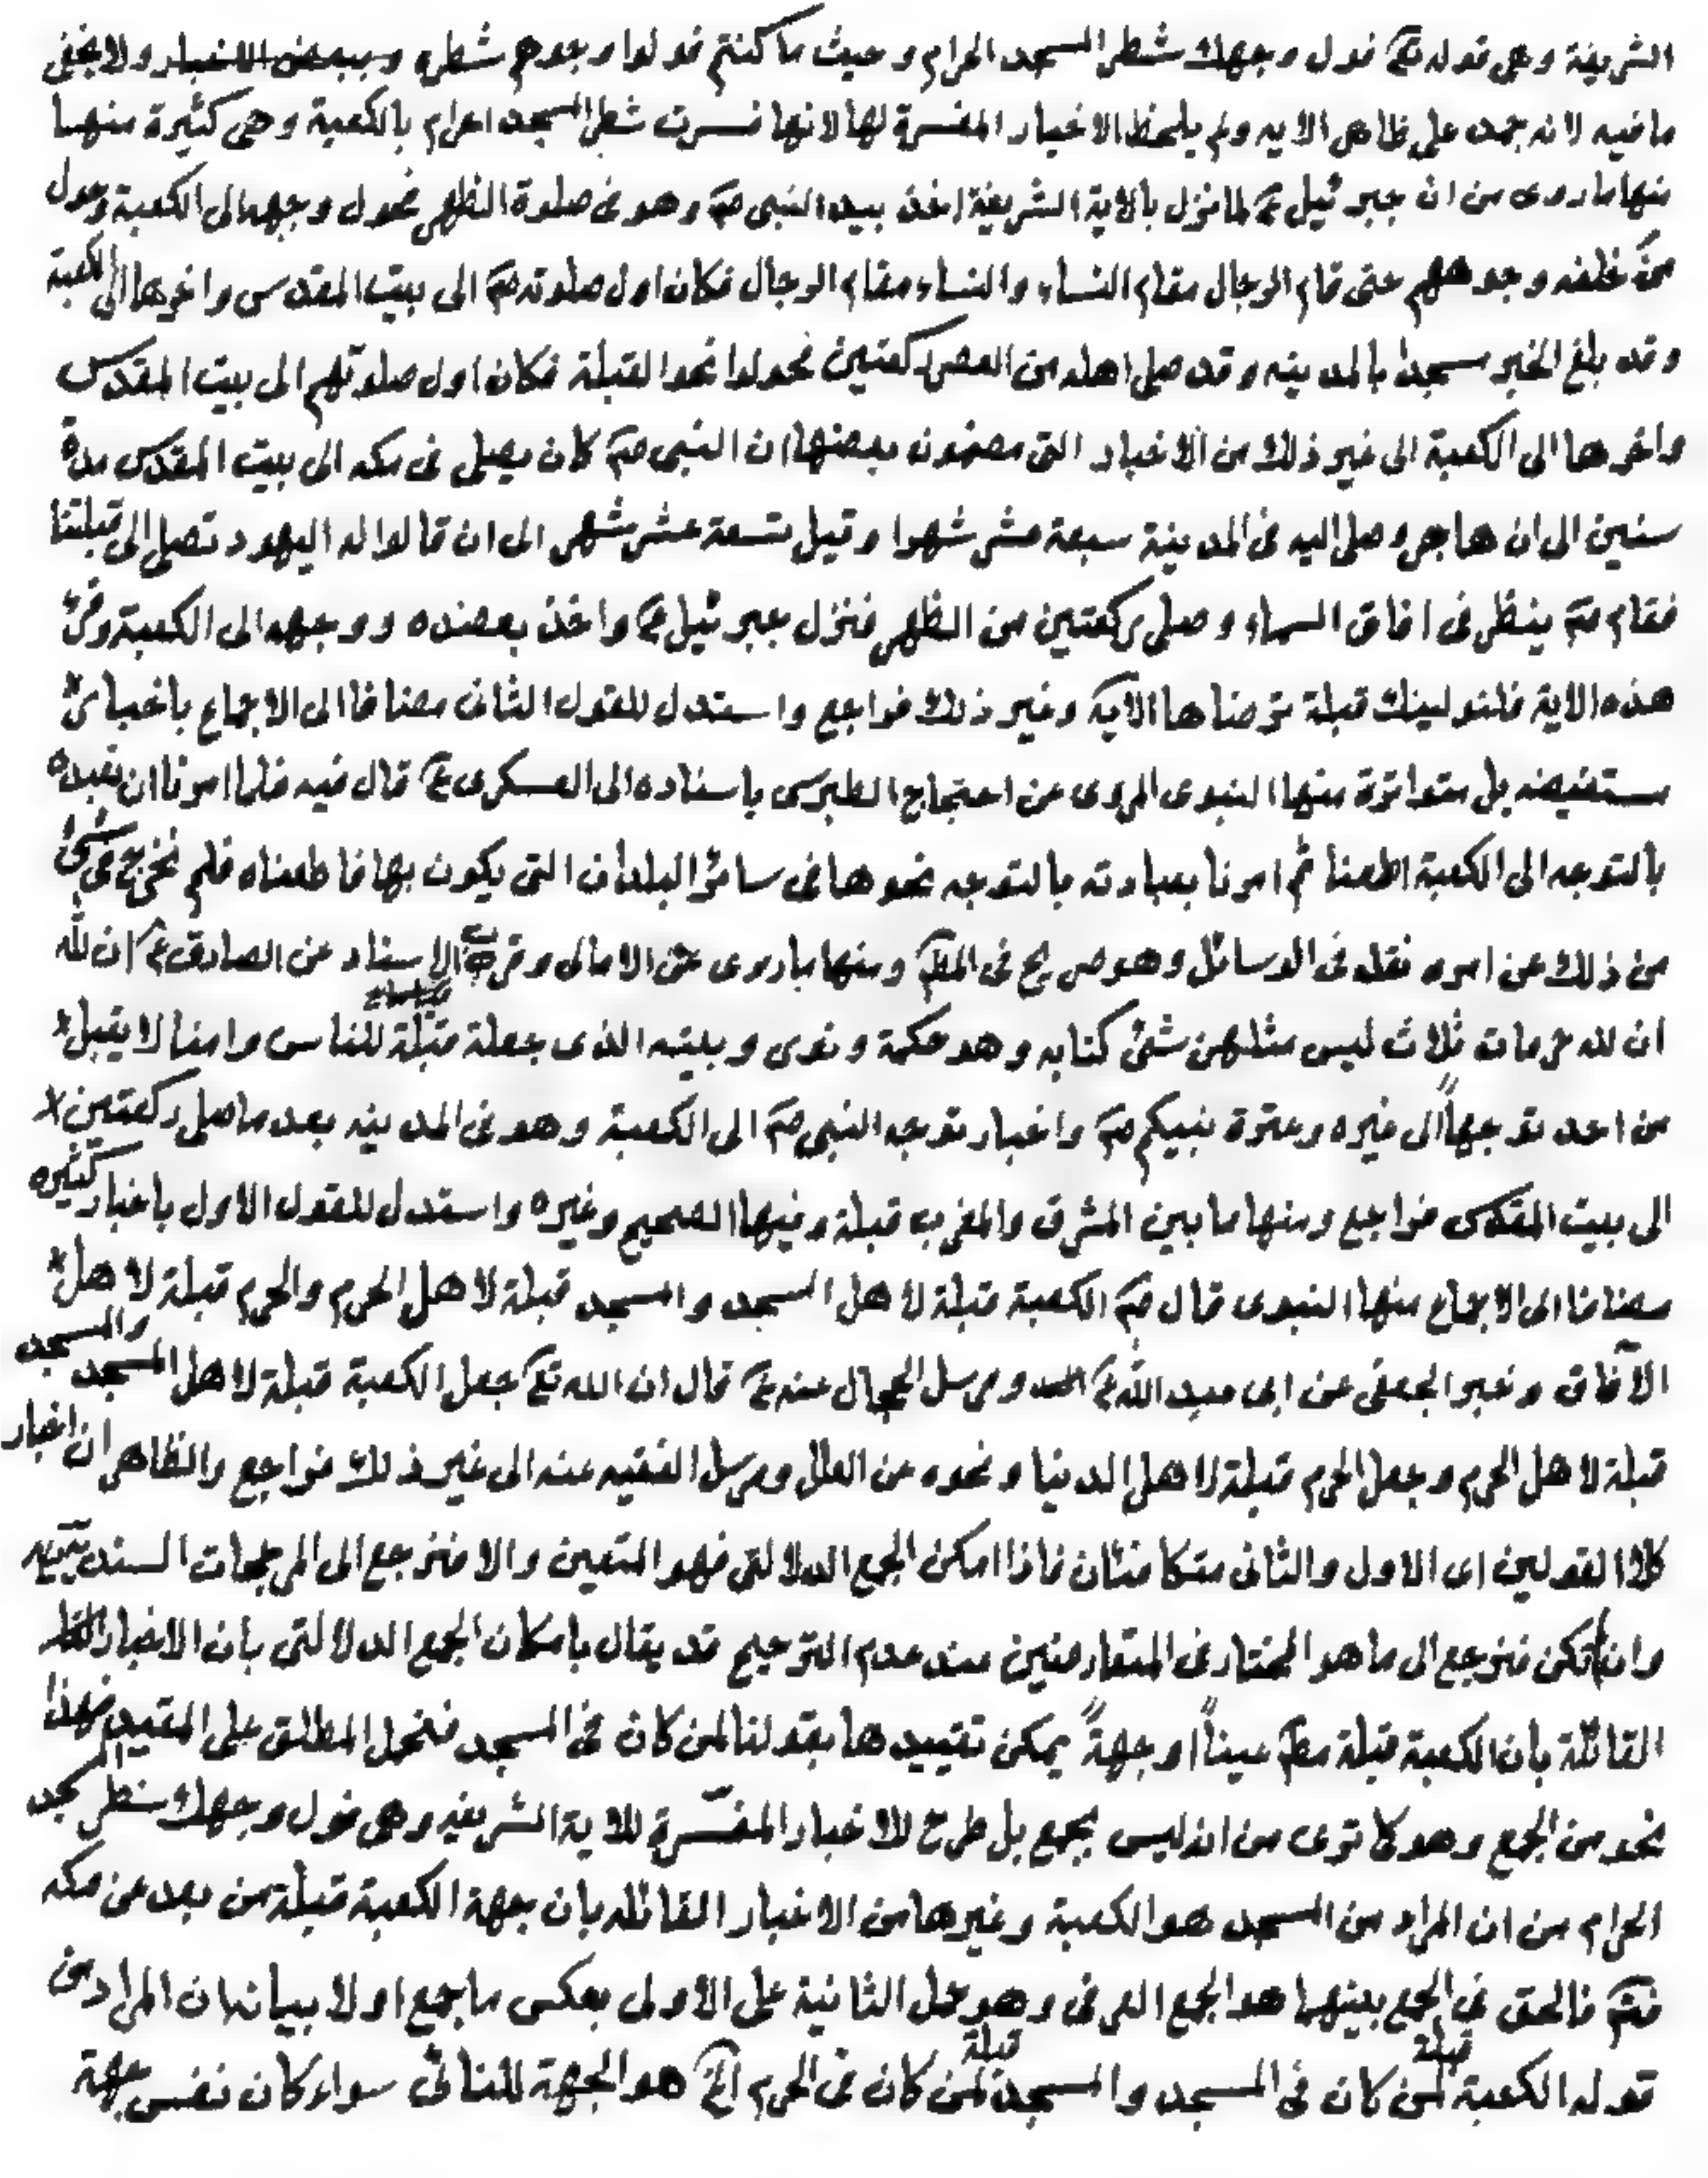 الشريفة وهى قوله تع فول وجهك شطر المسجد الحرام وحيث ما كنتم فولوا وجوهكم شطره وببعض الاخبار ولا يخفى
ما فيه لانه جمد على ظاهر الايه ولم يلحظ الاخبار المفسرة لها لانها فسرت شطر المسجد الحرام بالكعبة وهى كثيرة منها
منها ما روى من ان جبرئيل ع لما نزل بالاية الشريفة اخذ بيد النبى ص وهو فى صلوة الظهر فحول وجهه الى الكعبة وحول
من خلفه وجوههم حتى قام الرجال مقام النساء والنساء مقام الرجال فكان اول صلوته ص الى بيت المقدس واخرها الى الكعبة
وقد بلغ الخبر مسجدا بالمدينه وقد صلى اهله من العصر ركعتين فحولوا نحو القبلة فكان اول صلوتهم الى بيت المقدس
واخرها الى الكعبة الى غير ذلك من الاخبار التى مضمون بعضها ان النبى ص كان يصلى فى مكه الى بيت المقدس مدة
سنين الى ان هاجر وصلى اليه فى المدينة سبعة عشر شهرا وقيل تسعة عشر شهر الى ان قالوا له اليهود تصلى الى قبلتنا
فقام ص ينظر فى افاق السماء وصلى ركعتين من الظهر فنزل جبرئيل ع واخذ بعضده ووجهه الى الكعبة وقرء
هذه الاية فلنولينك قبلة ترضاها الآية وغير ذلك فراجع واستدل للقول الثانى مضافا الى الاجماع باخبار
مستفيضه بل متواترة منها النبوى المروى عن احتجاج الطبرسى باسناده الى العسكرى ع قال فيه فلما امرنا ان نعبده
بالتوجه الى الكعبة اطعنا ثم امرنا بعبادته بالتوجه نحوها فى سائر البلدان التى يكون بها فاطعناه فلم نخرج فى شئ
من ذلك عن امره نقله فى الوسائل وهو صريح فى المط ومنها ما روى عن الامالى وقرب الاسناد عن الصادق ع ان لله
ان لله حرمات ثلاث ليس مثلهن شئ كتابه وهو حكمة ونوى وبيته الذى جعلة قبلة للناس وامنا لا يقبل
من احد توجهاً الى غيره وعترة نبيكم ص واخبار توجه النبى ص الى الكعبة وهو فى المدينه بعد ما صلى ركعتين
الى بيت المقدس فراجع ومنها ما بين المشرق والمغرب قبلة وفيها الصحيح وغيره واستدل للقول الاول باخبار كثيره
مضافا الى الاجماع منها النبوى قال ص الكعبة قبلة لاهل المسجد والمسجد قبلة لاهل الحرم والحرم قبلة لاهل
الآفاق وخبر الجعفى عن ابى عبد الله ع ومرسل الحجال عنه ع قال ان الله تع جعل الكعبة قبلة لاهل المسجد والمسجد
قبلة لاهل الحرم وجعل الحرم قبلة لاهل الدنيا ونحوه عن العلل ومرسل الفقيه عنه الى غير ذلك فراجع والظاهر ان اخبار
كلا القولين اى الاول والثانى متكافئان فاذا امكن الجمع الدلالتى فهو المتعين والا فنرجع الى المرجحات السندييه
وان تكن فنرجع الى ما هو المختار فى المتعارضين عند عدم الترجيح قد يقال بامكان الجمع الدلالتى بان الاخبار
القائلة بان الكعبة قبلة مط عيناً او جهةً يمكن تقييدها بقولنا لمن كان فى المسجد فنحمل المطلق على المقيد فهذا
نحو من الجمع وهو كما ترى من انه ليس بجمع بل طرح للاخبار المفسّرة للاية الشريفه وهى فول وجهك شطر المسجد
الحرام من ان المراد من المسجد هو الكعبة وغيرها من الاخبار القائله بان جهة الكعبة قبلة من بعد عن مكه
فت‍م فالحق فى الجمع بينهما هو الجمع العرفى وهو حمل الثانية على الاولى بعكس ما جمع اولا بيانه ان المراد من
قوله الكعبة قبلة لمن كان فى المسجد والمسجد قبلة لمن كان فى الحرم الخ هو الجهة للنائى سواء كان نفس جهة